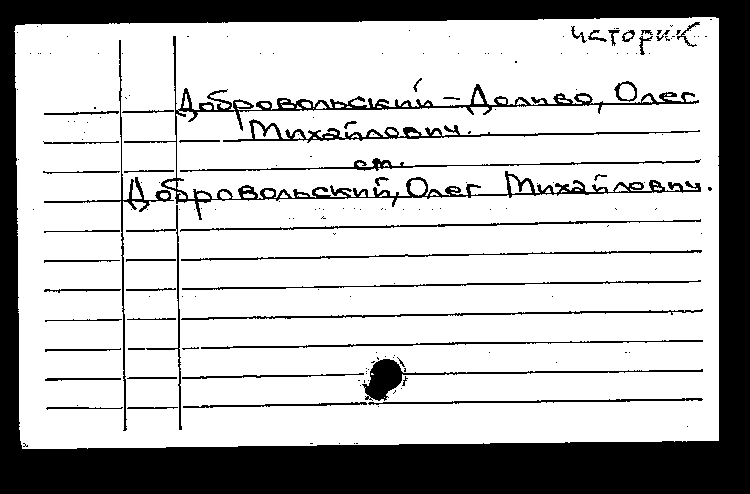 историк
Добровольский-Доливо, Олег
Михайлович.
см.
Добровольский, Олег Михайлович.